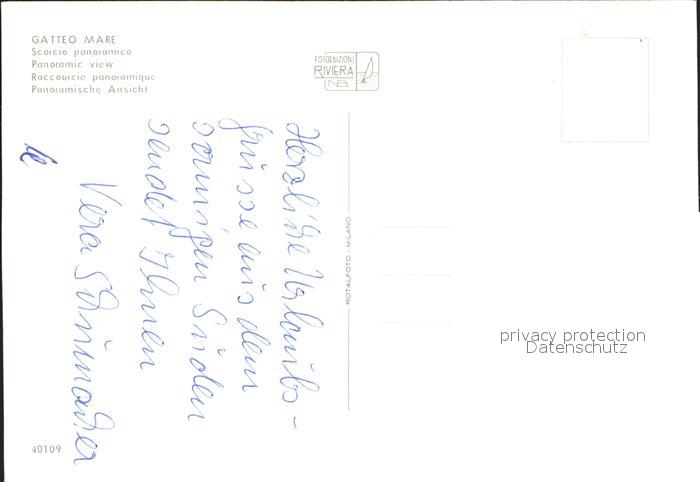 GATTEO MARE
Scorcio panoramico
Panoramic view
Raccourcie panoramique
Panoramische Ansicht
FOTOEDIZIONI
RIVIERA
NB
Herzliche Urlaubs-
grüsse aus dem
sonnigen Süden
sendet Ihnen
Vera
ROTALFOTO - MILANO
privacy protection
Datenschutz
40109